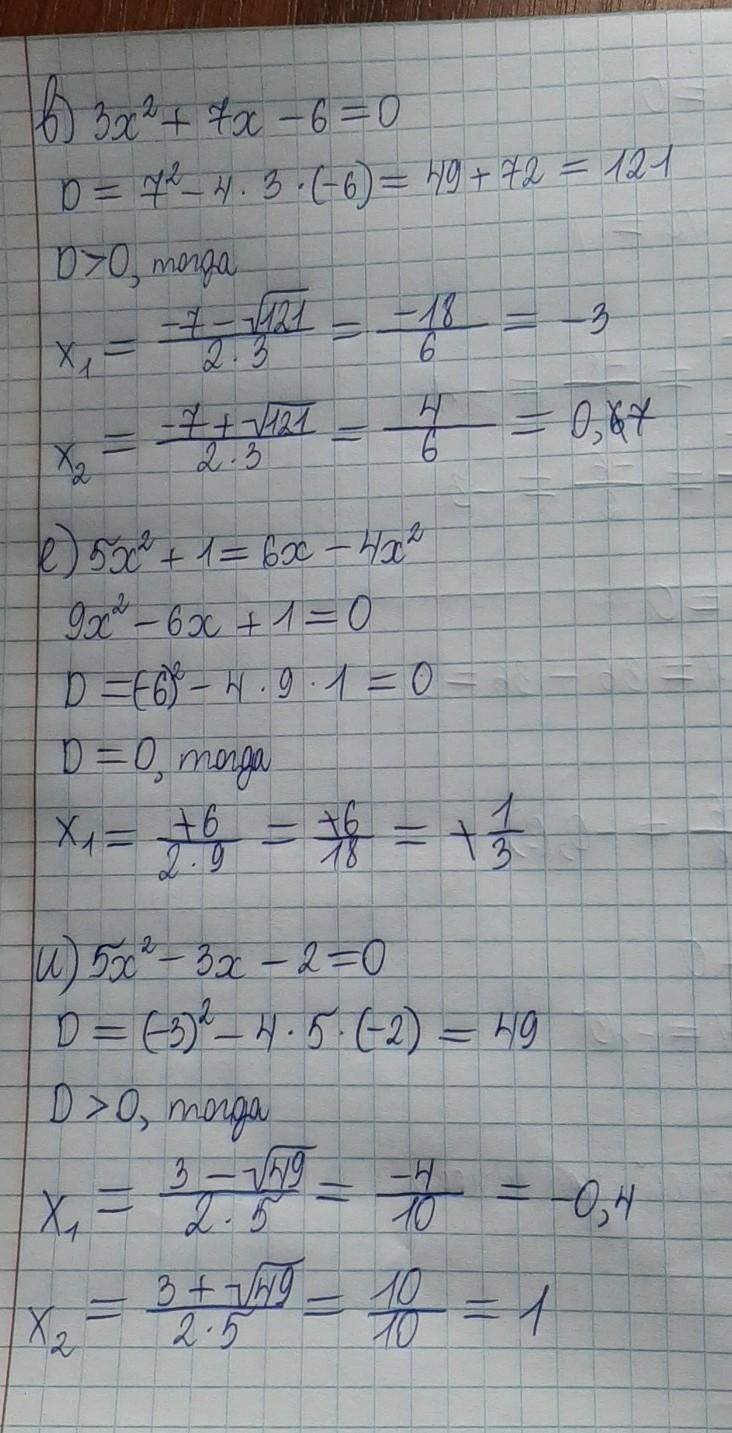 в) 3x² + 7x − 6 = 0
D = 7² − 4 · 3 · (−6) = 49 + 72 = 121
D > 0, тогда
x₁ = (−7 − √121)/(2 · 3) = −18/6 = −3
x₂ = (−7 + √121)/(2 · 3) = 4/6 = 0,67
е) 5x² + 1 = 6x − 4x²
9x² − 6x + 1 = 0
D = (−6)² − 4 · 9 · 1 = 0
D = 0, тогда
x₁ = +6/(2 · 9) = +6/18 = +1/3
и) 5x² − 3x − 2 = 0
D = (−3)² − 4 · 5 · (−2) = 49
D > 0, тогда
x₁ = (3 − √49)/(2 · 5) = −4/10 = −0,4
x₂ = (3 + √49)/(2 · 5) = 10/10 = 1